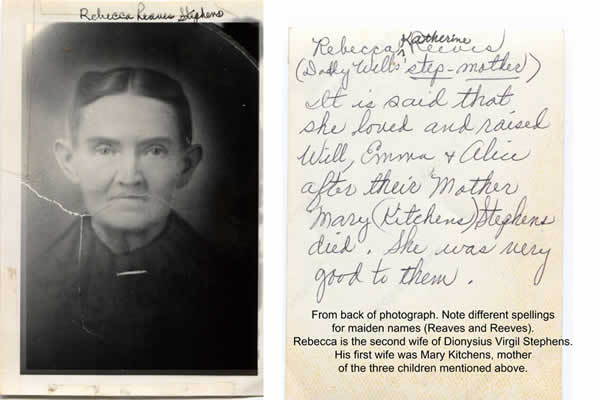 Rebecca Reaves Stephens
Katherine
Rebecca ^ Reeves
(Daddy Will's step-mother)
It is said that
she loved and raised
Will, Emma & Alice
after their Mother
Mary (Kitchens) Stephens
died. She was very
good to them.
From back of photograph. Note different spellings
for maiden names (Reaves and Reeves).
Rebecca is the second wife of Dionysius Virgil Stephens.
His first wife was Mary Kitchens, mother
of the three children mentioned above.